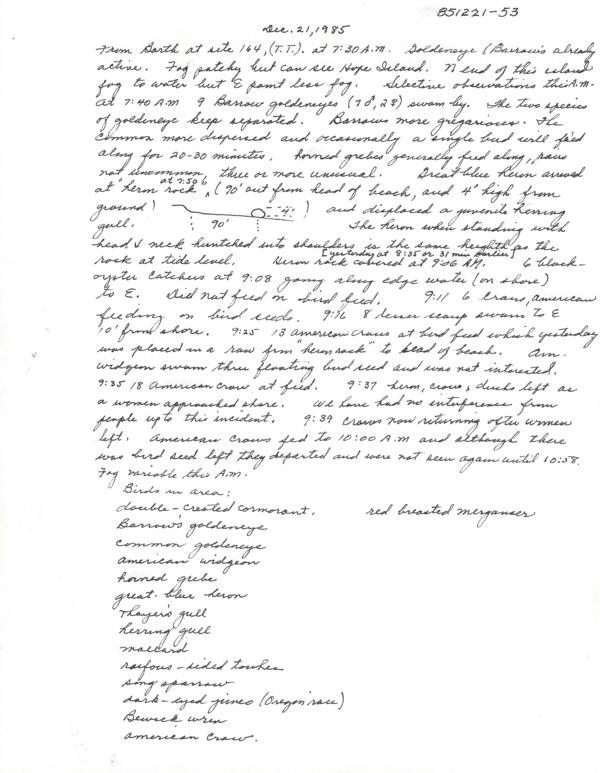 851221-53
Dec. 21, 1985
From Barth at site 164, (T.T.). at 7:30 A.M. Goldeneye (Barrow's already
active. Fog patchy but can see Hope Island. N end of this island
fog to water but E point less fog. Selective observations this A.M.
at 7:40 A.M 9 Barrow goldeneyes (7♂, 2♀) swam by. The two species
of goldeneye keep separated. Barrows more gregarious. The
common more dispersed and occasionally a single bird will feed
along for 20-30 minutes. horned grebes generally feed along, pairs
not uncommon, three or more unusual. Great blue heron arrived
at 7:50
at "heron rock", (90' out from head of beach, and 4' high from
ground) 90' 4' ) and displaced a juvenile herring
gull. The heron when standing with
head & neck hunched into shoulders is the same heighth as the
[yesterday at 8:35 or 31 min earlier]
rock at tide level. Heron rock covered at 9:06 AM. 6 black-
oyster catchers at 9:08 going along edge water (on shore)
to E. Did not feed on bird feed. 9:11 6 crows, american
feeding on bird seeds. 9:16 8 lesser scaup swam to E
10' from shore. 9:25 13 american crows at bird feed which yesterday
was placed in a row from "heron rock" to head of beach. am.
widgeon swam thru floating bird seed and was not interested.
9:35 18 american crow at feed. 9:37 heron, crows, ducks left as
a women approached shore. We have had no interference from
people up to this incident. 9:39 crows now returning after women
left. american crows fed to 10:00 A.M and although there
was bird seed left they departed and were not seen again until 10:58.
Fog variable this A.M.
Birds in area:
double-crested cormorant. red breasted merganser
Barrow's goldeneye
common goldeneye
american widgeon
horned grebe
great-blue heron
Thayer's gull
herring gull
mallard
roufous-sided towhee
song sparrow
dark-eyed junco (Oregon race)
Bewick wren
american crow.